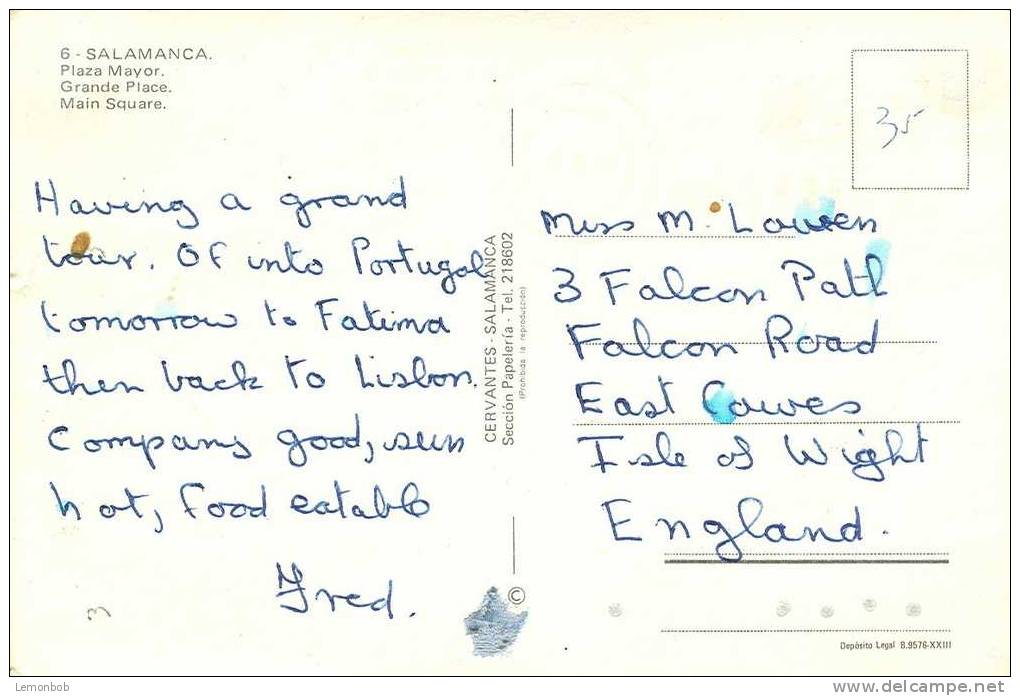 6 - SALAMANCA.
Plaza Mayor.
Grande Place.
Main Square.
35
Having a grand
tour. Of into Portugal
tomorrow to Fatima
then back to Lisbon.
Company good, sun
hot, food eatable
Fred.
3
CERVANTES - SALAMANCA
Sección Papelería - Tel. 218602
(Prohibida la reproducción)
©
Miss M. Lowen
3 Falcon Path
Falcon Road
East Cowes
Isle of Wight
England.
Depósito Legal B.9576-XXIII
Lemonbob
www.delcampe.net